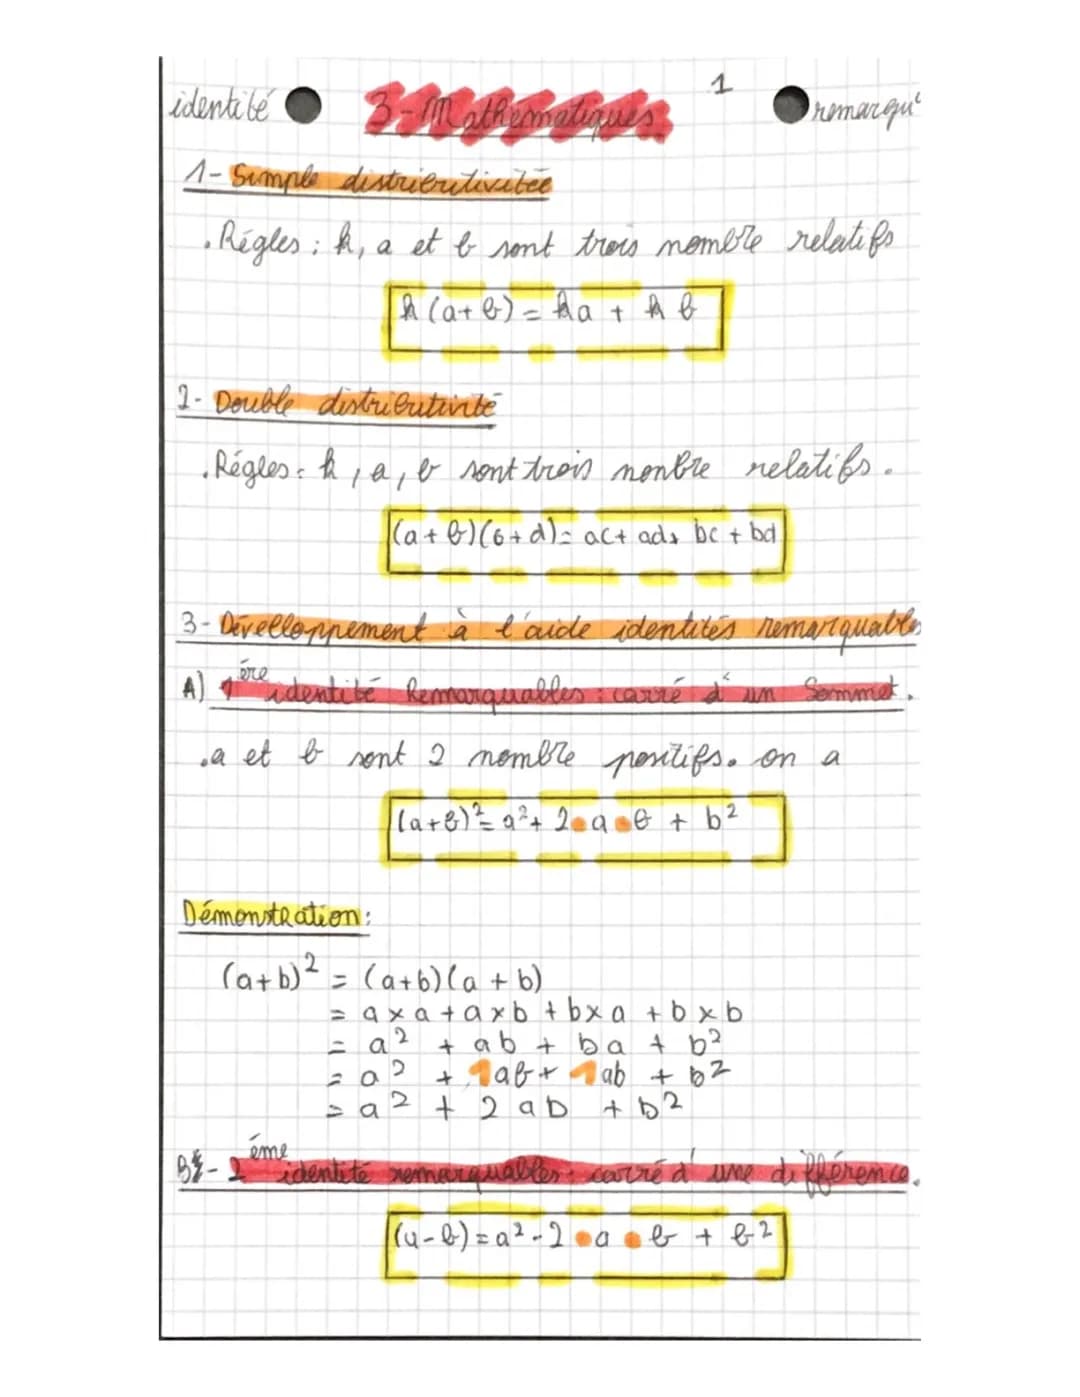 1
identité 3-Mathématiques remarqu
1- Simple distributivitée
. Régles : k, a et b sont trois nombre relatifs
k (a+b) = ka + k b
2- Double distributivité
. Régles : k, a, b sont trois nonbre relatifs.
(a + b)(c+d) = ac+ ad+ bc + bd
3- Dévelloppement à l'aide identités remarquables
A) 1ère identité Remarquables : carré d'un Sommet.
.a et b sont 2 nombre positifs. on a
(a+b)²= a²+ 2•a•b + b²
Démonstration :
(a+b)² = (a+b)(a + b)
= a x a + a x b + b x a + b x b
= a² + ab + ba + b²
= a² + 1ab + 1ab + b²
= a² + 2 ab + b²
B - 2éme identité remarquables : carré d'une différence.
(a-b) = a² - 2 •a •b + b²